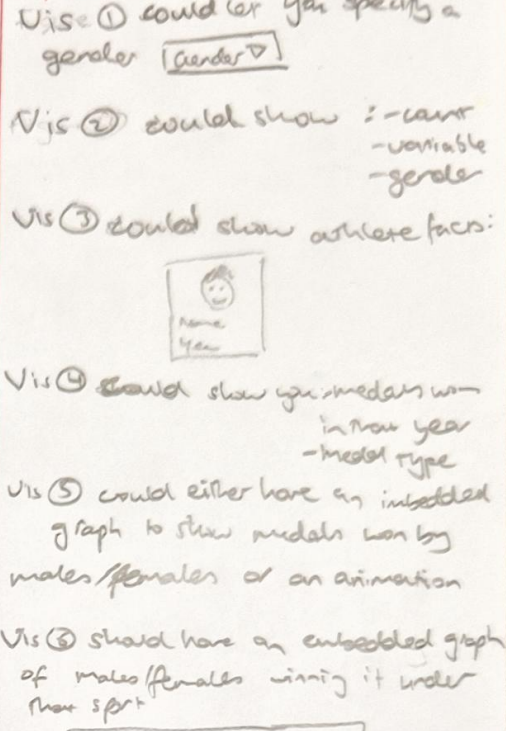 Vis ① could let you specify a
gender Gender ▽
Vis ② could show :- count
- variable
- gender
Vis ③ could show athlete facts:
Name
Year
Vis ④ could show you :- medals won
in that year
- medal type
Vis ⑤ could either have an imbedded
graph to show medals won by
males/females or an animation
Vis ⑥ should have an embedded graph
of males/females winnig it under
that sport